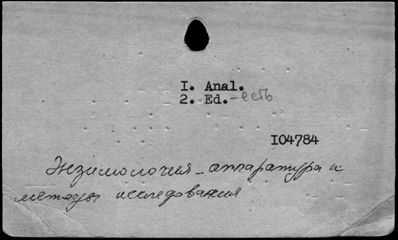 I. Anal.
2. Ed. - есть
I04784
Энзимология - аппаратура и
методы исследования